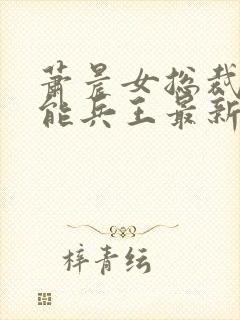 萧晨女总裁
能兵王最新
梓青纭